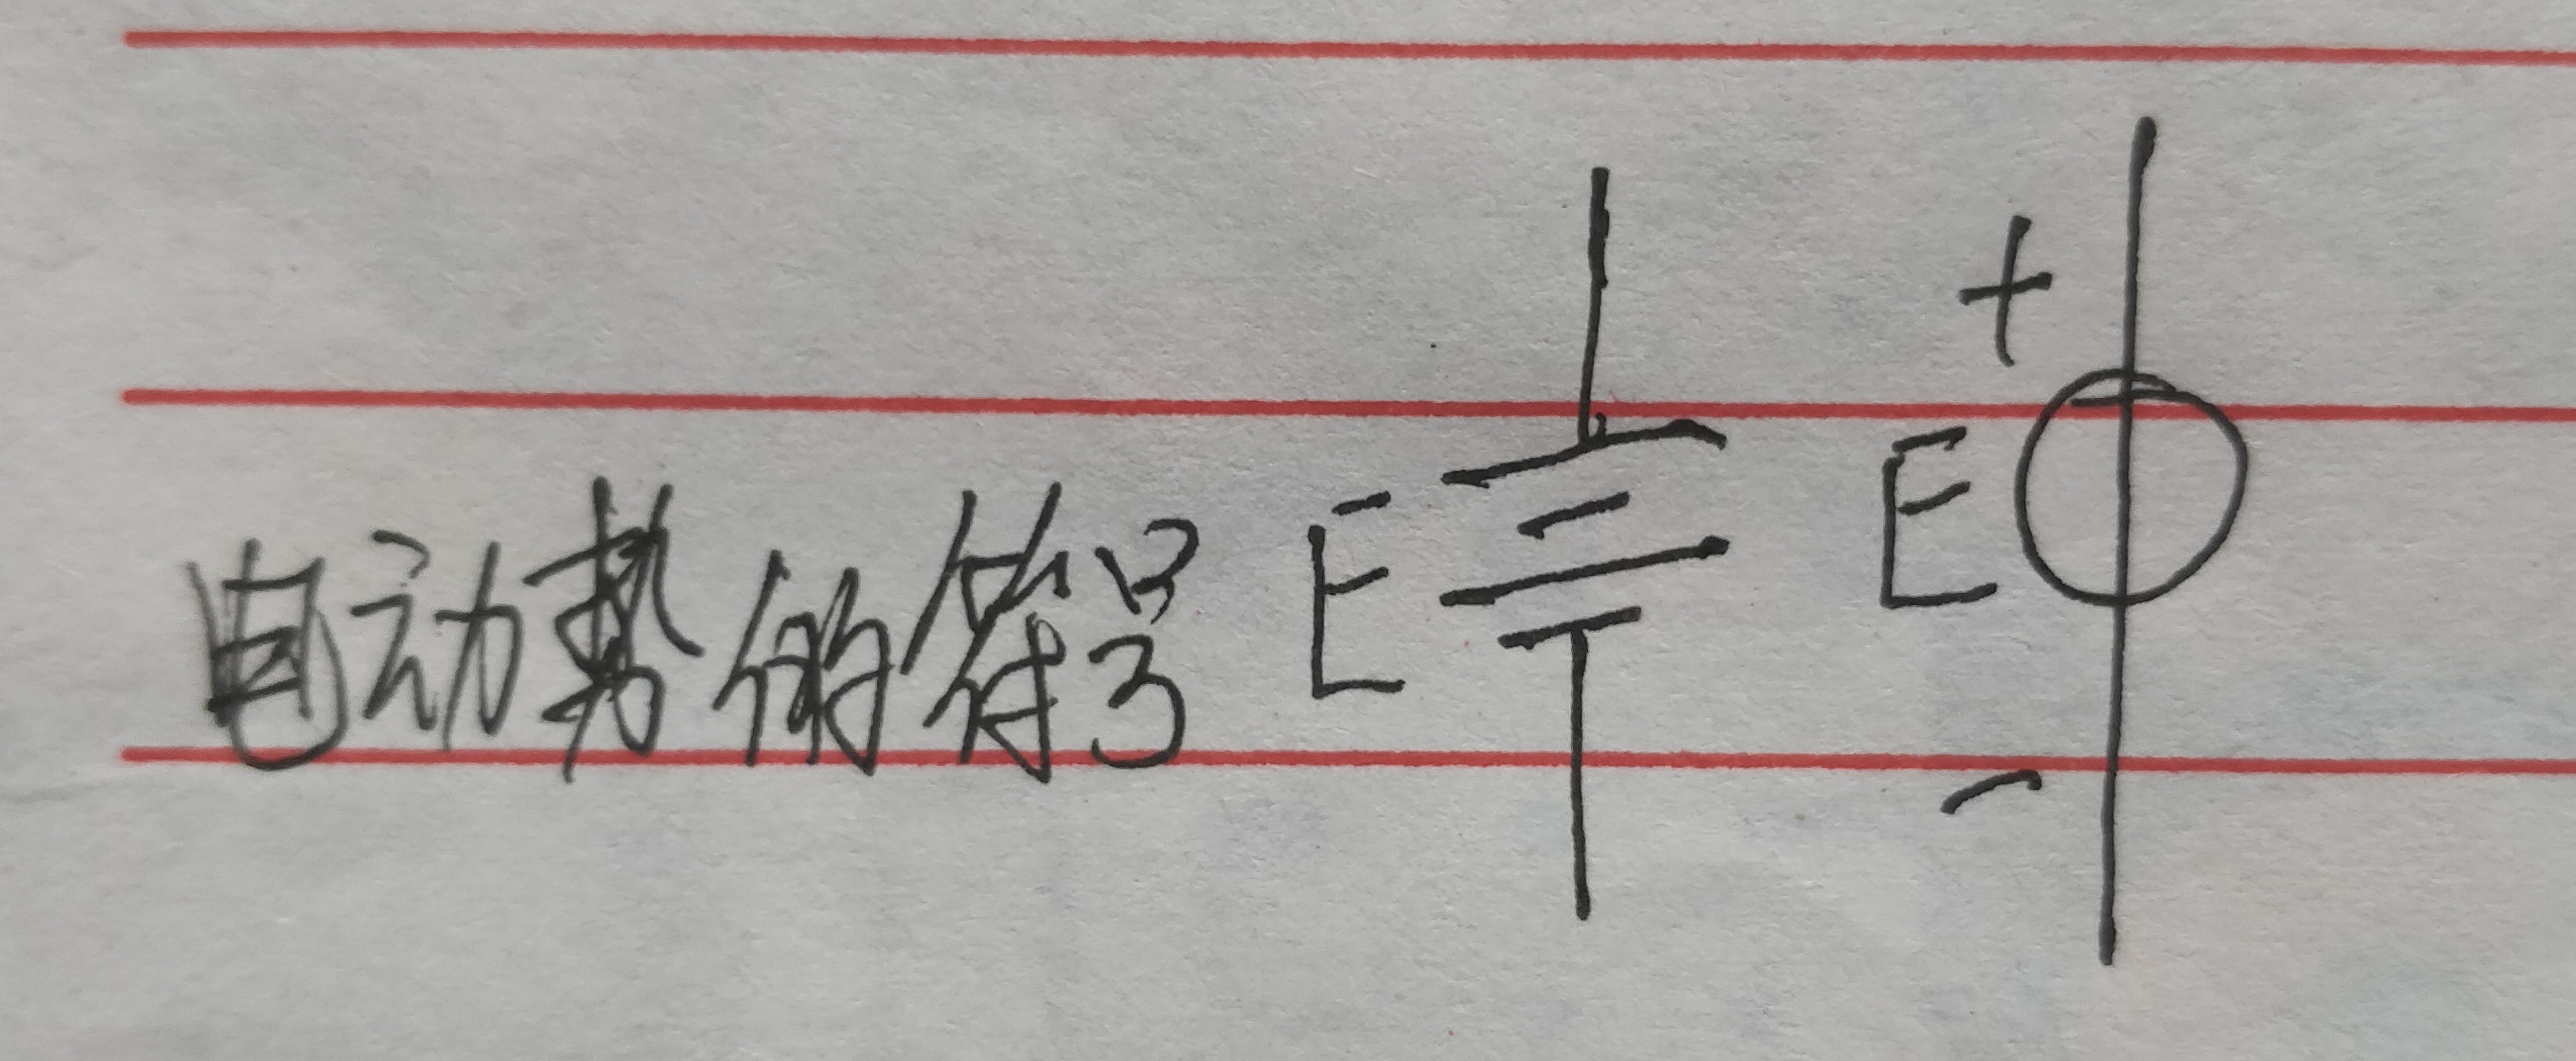 电动势的符号 E + E -